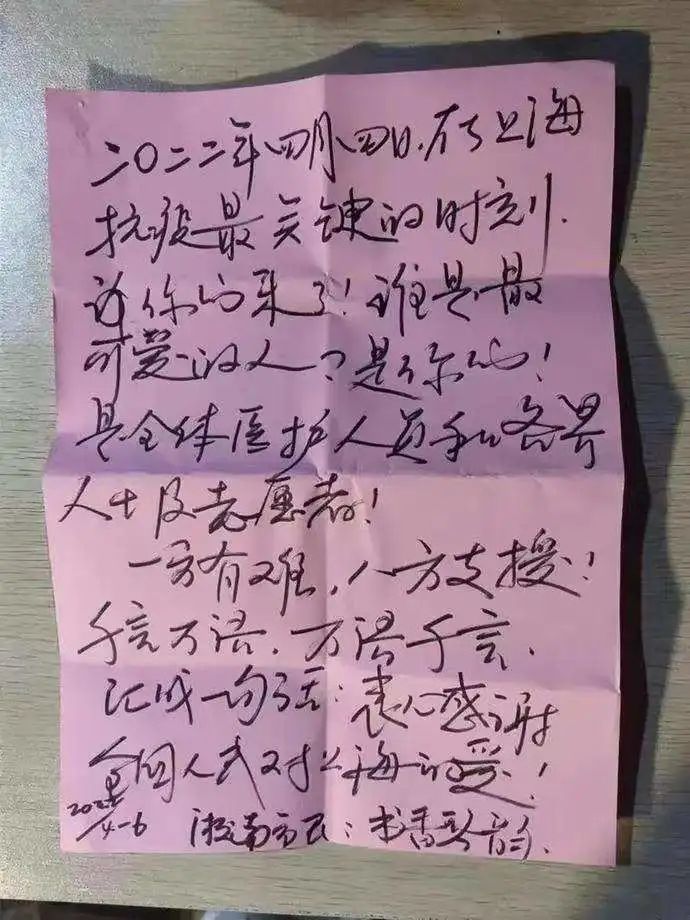 二〇二二年四月四日.在上海
抗疫最关键的时刻.
你们来了！谁是最
可爱的人？是你们！
是全体医护人员和各界
人士及志愿者！
一方有难，八方支援！
千言万语，万语千言，
汇成一句话：衷心感谢
全国人民对上海的爱！
2022 4-6 淞南市民：书香